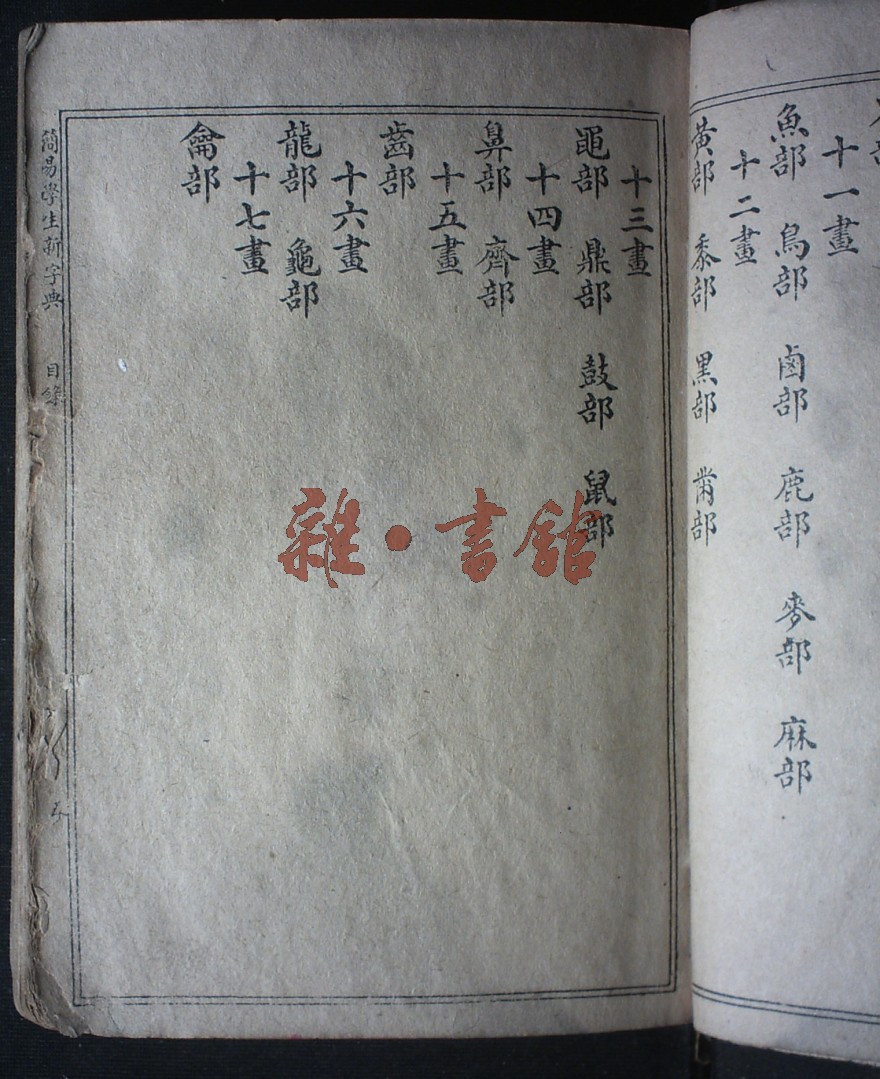 十一畫
魚部 鳥部 鹵部 鹿部 麥部 麻部
十二畫
黃部 黍部 黑部 黹部
十三畫
黽部 鼎部 鼓部 鼠部
十四畫
鼻部 齊部
十五畫
齒部
十六畫
龍部 龜部
十七畫
龠部
簡易學生新字典 目錄
雜·書館